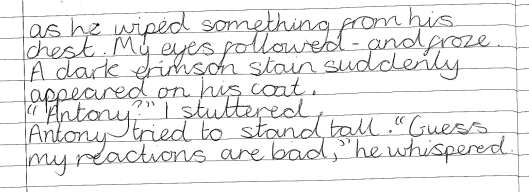 as he wiped something from his
chest. My eyes followed - and froze.
A dark crimson stain suddenly
appeared on his coat.
"Antony?" I stuttered.
Antony tried to stand tall. "Guess
my reactions are bad," he whispered.